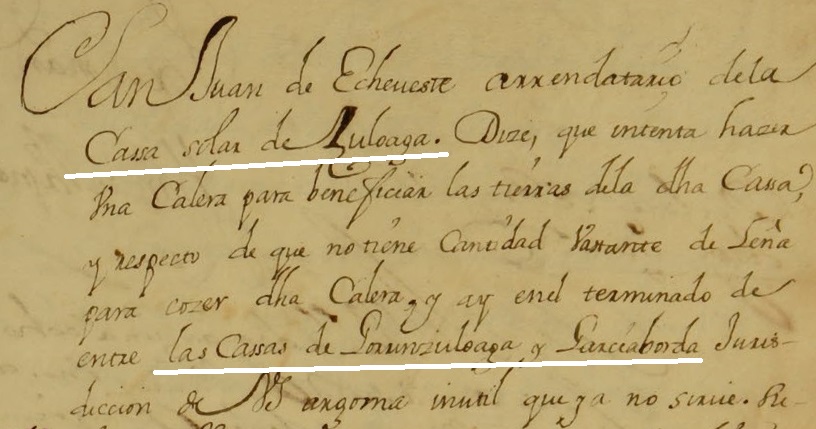 San Juan de Echeueste arrendatario dela
Cassa solar de Zuloaga. Dize, que intenta hazer
Vna Calera para beneficiar las tierras dela dha Cassa,
y respecto de que no tiene Cantidad Vastante de Leña
para cozer dha Calera, y ay enel terminado de
entre las Cassas de Porrunzuloaga y Garciaborda Juris-
diccion de VS argoma inutil que ya no sirue.